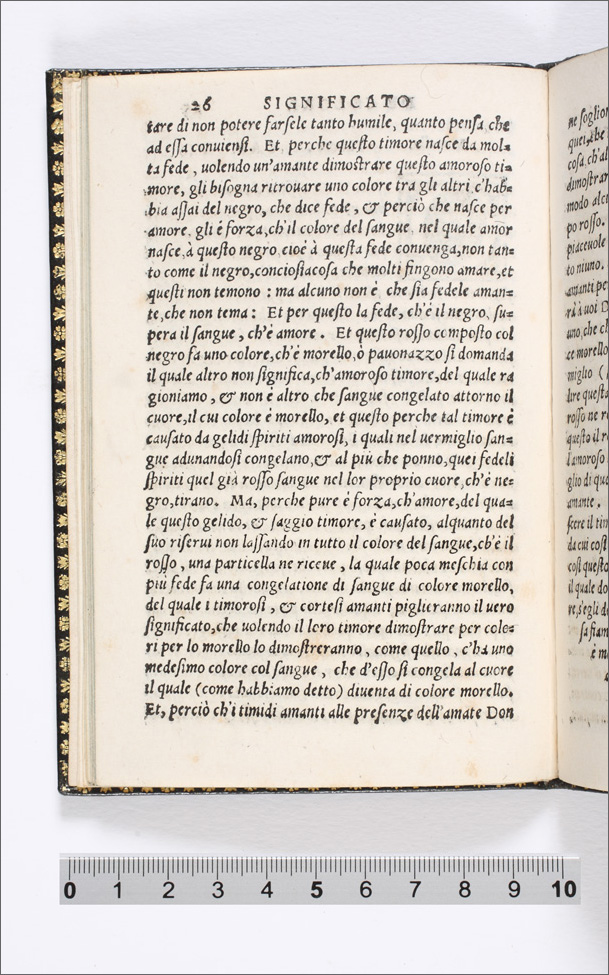 26 SIGNIFICATO
tare di non potere farsele tanto humile, quanto pensa che
ad essa conuiensi. Et perche questo timore nasce da mol=
ta fede, uolendo un'amante dimostrare questo amoroso ti=
more, gli bisogna ritrouare uno colore tra gli altri c'hab=
bia assai del negro, che dice fede, & perciò che nasce per
amore gli é forza, ch'il colore del sangue nel quale amor
nasce, à questo negro cioé à questa fede conuenga, non tan=
to come il negro, conciosiacosa che molti fingono amare, et
questi non temono : ma alcuno non é che sia fedele aman=
te, che non tema : Et per questo la fede, ch'é il negro, su=
pera il sangue, ch'é amore. Et questo rosso composto col
negro fa uno colore, ch'é morello, ò pauonazzo si domanda
il quale altro non significa, ch'amoroso timore, del quale ra
gioniamo, & non é altro che sangue congelato attorno il
cuore, il cui colore é morello, et questo perche tal timore é
causato da gelidi spiriti amorosi, i quali nel uermiglio san=
gue adunandosi congelano, & al più che ponno, quei fedeli
spiriti quel già rosso sangue nel lor proprio cuore, ch'é ne=
gro, tirano. Ma, perche pure é forza, ch'amore, del qua=
le questo gelido, & saggio timore, é causato, alquanto del
suo riserui non lassando in tutto il colore del sangue, ch'é il
rosso, una particella ne riceue, la quale poca meschia con
più fede fa una congelatione di sangue di colore morello,
del quale i timorosi, & cortesi amanti piglieranno il uero
significato, che uolendo il loro timore dimostrare per colo=
ri per lo morello lo dimostreranno, come quello, c'ha uno
medesimo colore col sangue, che d'esso si congela al cuore
il quale (come habbiamo detto) diuenta di colore morello.
Et, perciò ch'i timidi amanti alle presenze dell'amate Don
ne soglion
quei, che
cosa, ch'al
dimostrar
modo alc
po rosso.
piaceuole
to niuno.
amanti pe
rà à uoi D
uno, che c
ce morello
miglio (
lire questa
rosso ne r
questo il r
l'amoroso
glio di que
amante.
fecere il tim
da cui cosi
cosi questo
il quale do
re, s'egli d
sa fiam
è mo
0 1 2 3 4 5 6 7 8 9 10